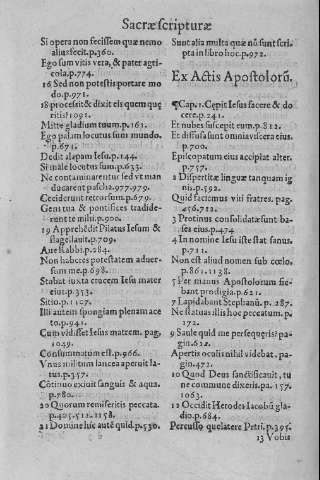 Sacræ scripturæ
Si opera non fecissem quæ nemo
alius fecit.p.360.
Ego sum vitis vera, & pater agri-
cola.p.774.
16 Sed non potestis portare mo
do.p.971.
18 processit & dixit eis quem quę
ritis? 1092.
Mitte gladium tuum.p.161.
Ego palam locutus sum mundo.
p.671.
Dedit alapam Iesu.p.144.
Si male locutus sum.p.633.
Ne contaminarentur sed vt man
ducarent pascha.977.979.
Ceciderunt retrorsum.p.679.
Gens tua & pontifices tradide-
runt te mihi.p.900.
19 Apprehẽdit Pilatus Iesum &
flagellauit.p.709.
Aue Rabbi.p.284.
Non haberes potestatem aduer-
sum me.p.698.
Stabat iuxta crucem Iesu mater
eius.p.353.
Sitio.p.1107.
Illi autem spongiam plenam ace
to.p.941.
Cum vidisset Iesus matrem. pag.
1049.
Consummatum est.p.966.
Vnus militum lancea aperuit la-
tus.p.357.
Cõtinuo exiuit sanguis & aqua.
p.780.
20 Quorum remiseritis peccata.
p.405.512.1158.
21 Domine hic autẽ quid.p.530.
Sunt alia multa quæ nũ sunt scri-
pta in libro hoc.p.972.
Ex Actis Apostolorũ.
¶Cap.1. Cępit Iesus facere & do
cere.p.241.
Et nubes suscepit eum.p.812.
Et diffusa sunt omnia viscera eius.
p.700.
Episcopatum eius accipiat alter.
p.757.
2 Dispertitæ linguæ tanquam ig
nis.p.592.
Quid faciemus viri fratres. pag.
456.712.
3 Protinus consolidatæ sunt ba-
ses eius.p.474
4 In nomine Iesu iste stat sanus.
p.711.
Non est aliud nomen sub cœlo.
p.861.1138.
5 Per manus Apostolorum fie-
bant prodigia.621.
7 Lapidabant Stephanũ. p. 287.
Ne statuas illis hoc peccatum. p.
172.
9 Saule quid me persequeris? pa-
gin.622.
Apertis oculis nihil videbat. pa-
gin.472.
10 Quod Deus sanctificauit, tu
ne commune dixeris.pa. 157.
1063.
12 Occidit Herodes Iacobũ gla-
dio.p.684.
Percusso que latere Petri.p.395.
13 Vobis